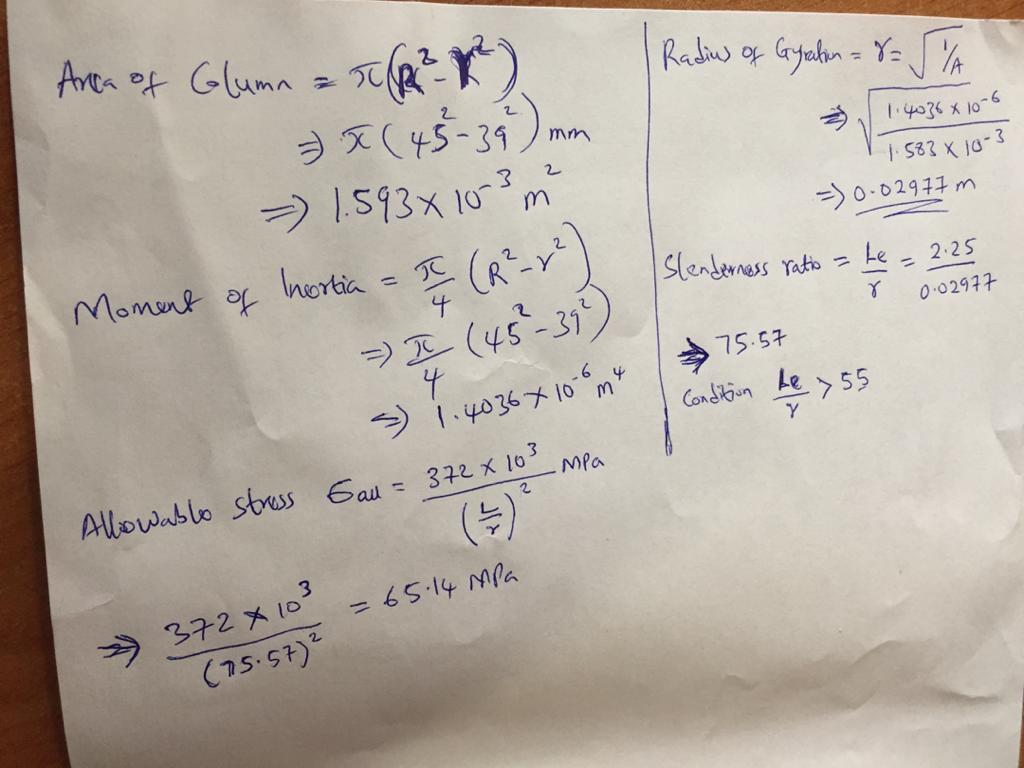 Area of Column = π(R² - r²)
⇒ π(45² - 39²) mm
⇒ 1.593 × 10⁻³ m²
Moment of Inertia = π/4 (R² - r²)
⇒ π/4 (45² - 39²)
⇒ 1.4036 × 10⁻⁶ m⁴
Allowable stress σall = 372 × 10³ / (L/r)² MPa
⇒ 372 × 10³ / (75.57)² = 65.14 MPa
Radius of Gyration = r = √(I/A)
⇒ √(1.4036 × 10⁻⁶ / 1.583 × 10⁻³)
⇒ 0.02977 m
Slenderness ratio = Le/r = 2.25/0.02977
⇒ 75.57
Condition Le/r > 55